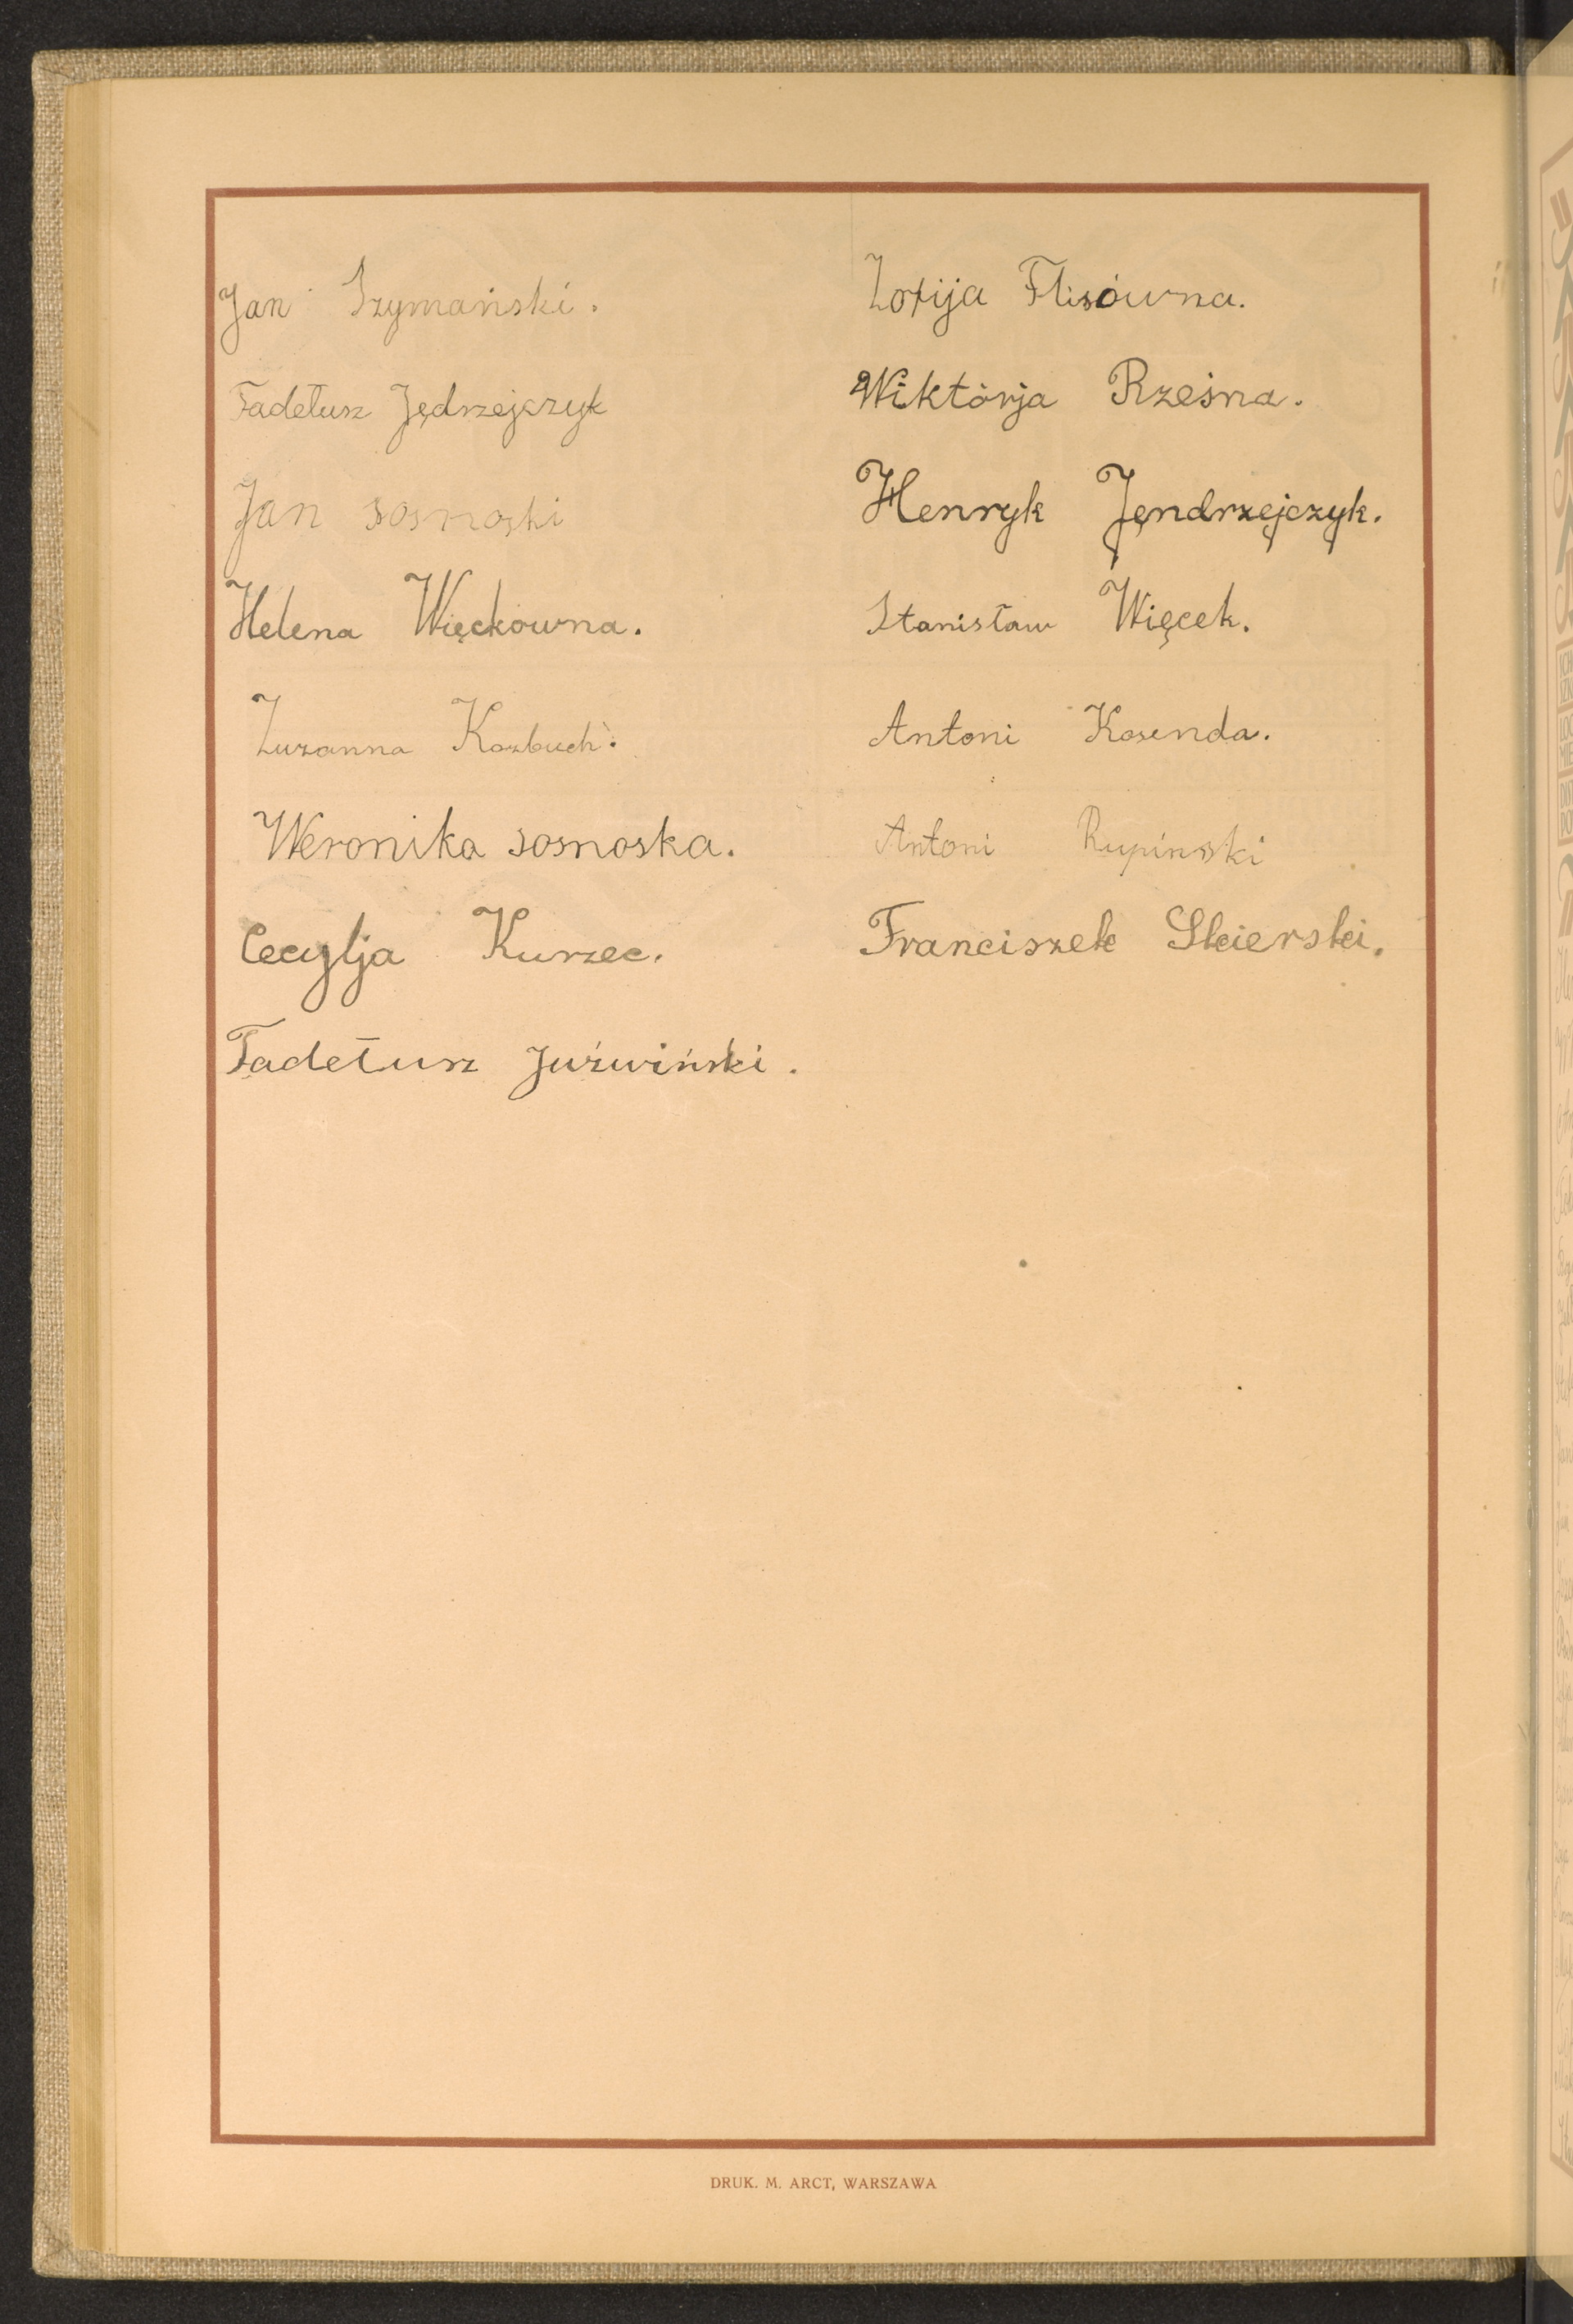 Jan Szymański.
Tadełusz Jędrzejczyk
Jan Sosnoski
Helena Więckowna.
Zuzanna Kozbuch.
Weronika Sosnoska.
Cecylja Kurzec.
Tadełusz Juźwiński.
Zofija Flisówna.
Wiktórja Rześna.
Henryk Jęndrzejczyk.
Stanisław Więcek.
Antoni Kosenda.
Antoni Rupinski
Franciszek Skierski.
DRUK. M. ARCT, WARSZAWA